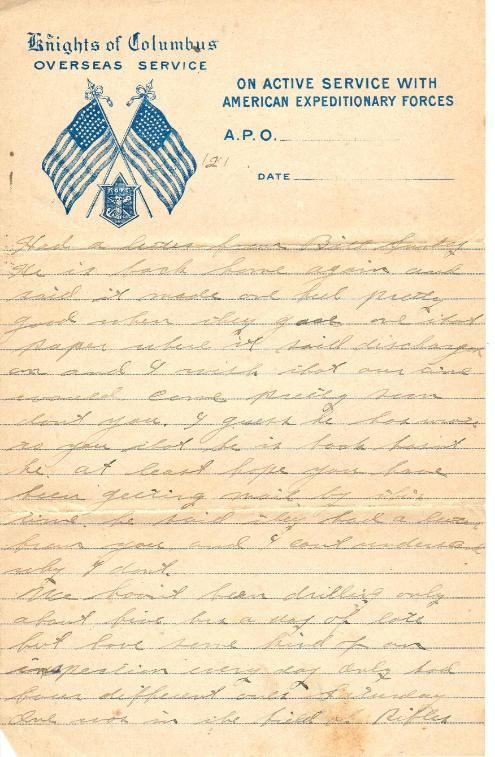 Knights of Columbus
OVERSEAS SERVICE
ON ACTIVE SERVICE WITH
AMERICAN EXPEDITIONARY FORCES
A.P.O.
DATE
"2"
Had a letter from Bill
He is back home again and
said it made one feel pretty
good when they gave one that
paper where it said discharge
on and I wish that our time
would come pretty soon
dont you. I guess he has wrote
to you that he is back hasnt
he. at least hope you have
been getting mail by this
time. he said they had a letter
from you and I cant understand
why I dont.
We havnt been drilling only
about five hrs a day of late
but have some kind of an
inspection every day only had
four different ones Saturday
One was in the field
Rifles